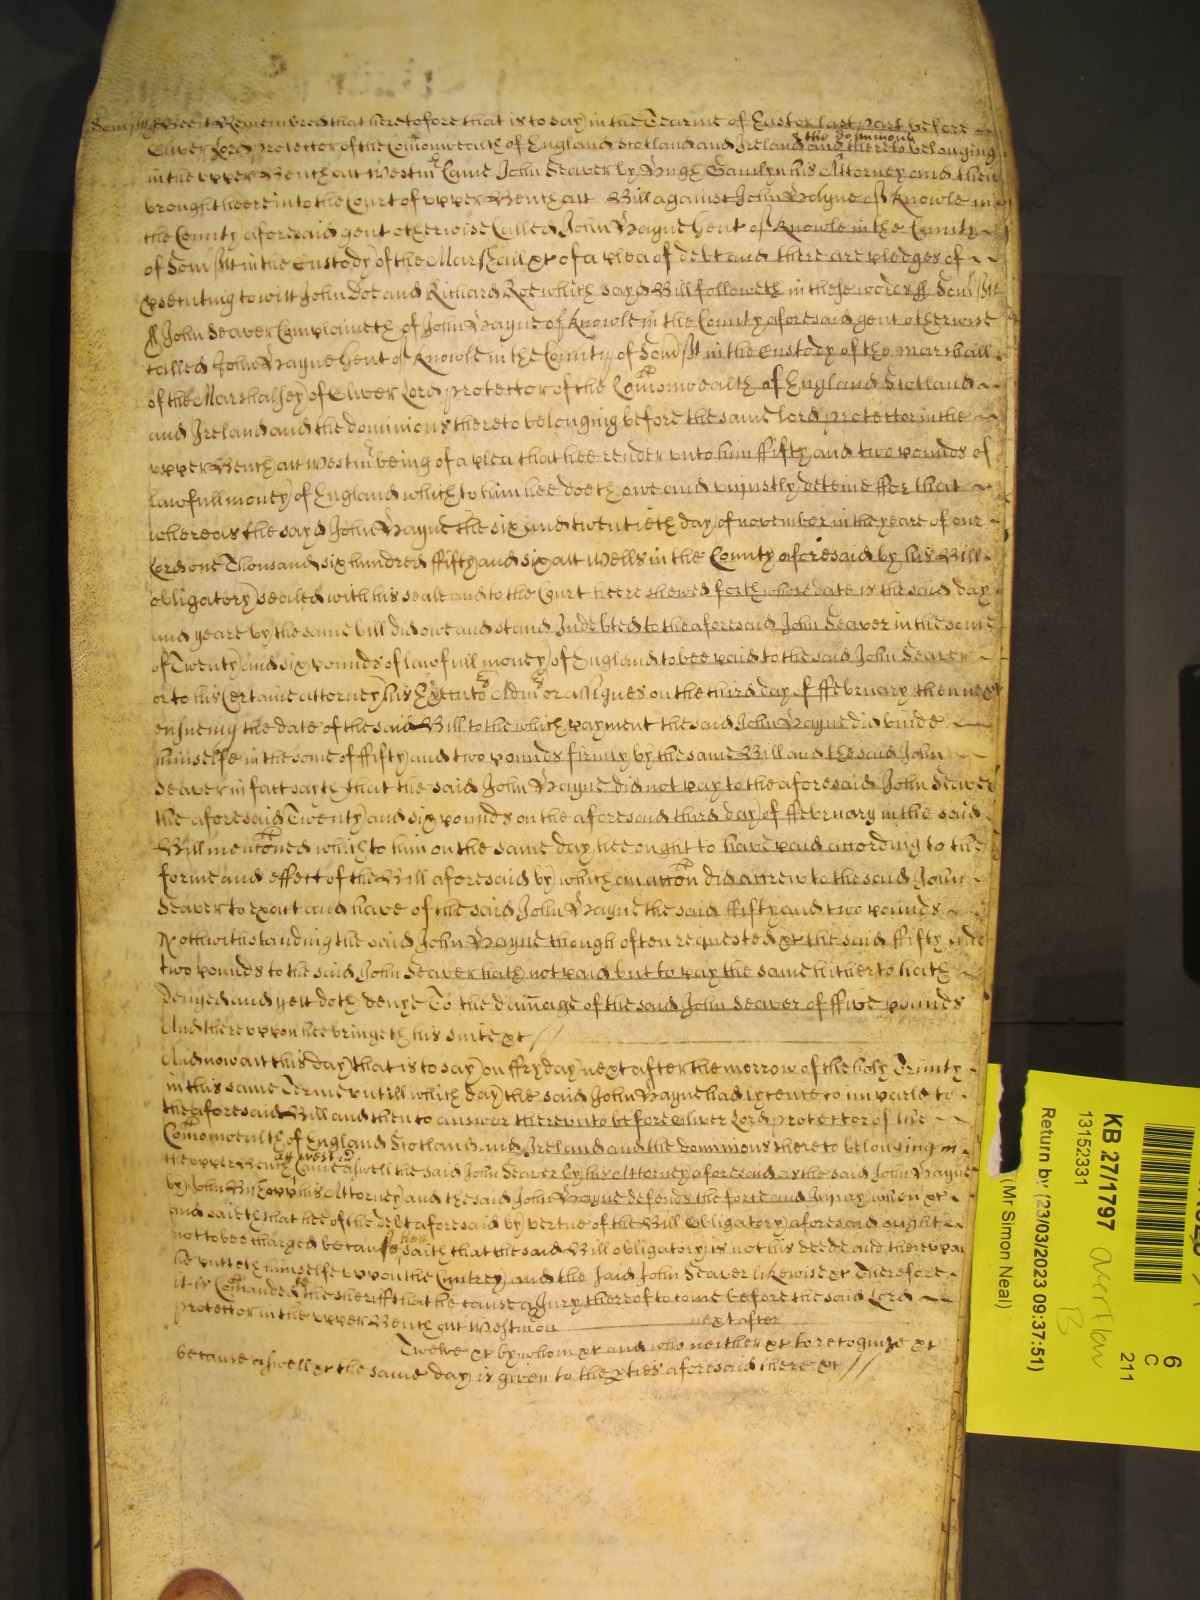 Som̄sstt Bee it Remembred that heretofore that is to say in the Tearme of Easter last past before
Oliver Lord Protector of the Com̄onwealth of England Scotland and Ireland & the Dominions and thereto belonging
in the upper Bench att Westmr Came John Seaver by Hugh Gamlyn his Attorney and then
brought heere into the Court of upper Bench att Bill against John Hayne of Knowle in
the County aforesaid gent otherwise Called John Hayne gent of Knowle in the County
of Som̄sstt in the Custody of the Marshall &c of a plea of debt and there are pledges of
psecuting to witt John Doe and Richard Roe which sayd Bill followeth in these words ss Som̄sstt
ss John Seaver Complaineth of John Hayne of Knowle in the County aforesaid gent otherwise
called John Hayne gent of Knowle in the County of Som̄sstt in the Custody of the Marshall
of the Marshalsey of Oliver Lord Protector of the Com̄onwealth of England Scotland
and Ireland and the dominions thereto belonging before the same Lord Protector in the
upper Bench att Westmr being of a plea that hee render unto him ffifty and two pounds of
lawfull money of England which to him hee doeth owe and unjustly deteine ffor that
whereas the sayd John Hayne the six and twentieth day of November in the yeare of our
Lord one Thousand six hundred ffifty and six att Wells in the County aforesaid by his Bill
obligatory sealed with his seale and to the Court heere shewed forth whose date is the said day
and yeare by the same bill did owe and stand Indebted to the aforesaid John Seaver in the some
of Twenty and six pounds of lawfull money of England to bee paid to the said John Seaver
or to his Certaine attorney his Executors Adm̄rs or assignes on the third day of ffebruary then next
ensueing the date of the said Bill to the which payment the said John Hayne did binde
himselfe in the some of ffifty and two pounds firmly by the same Bill and the said John
Seaver in fact sayth that the said John Hayne did not pay to the aforesaid John Seaver
the aforesaid Twenty and six pounds on the aforesaid third day of ffebruary in the said
Bill menc̄oned which to him on the same day hee ought to have paid according to the
forme and effect of the Bill aforesaid by which an acc̄on did accrew to the said John
Seaver to exact and have of the said John Hayne the said ffifty and two pounds
Nothwithstanding the said John Hayne though often requested &c the said ffifty and
two pounds to the said John Seaver hath not paid but to pay the same hitherto hath
denyed and yett doth denye To the dam̄age of the said John Seaver of ffive pounds
And thereuppon hee bringeth his suite &c //
And now att this day that is to say on ffryday next after the morrow of the holy Trinity
in this same Terme untill which day the said John Hayne had lycence to imparle to
the aforesaid Bill and then to answer thereunto before Oliver Lord Protector of the
Com̄onwealth of England Scotland and Ireland and the dominions thereto belonging in
the upper Bench att Westmr Came aswell the said John Seaver by his Attorney aforesaid as the said John Hayne
by John his Attorney and the said John Hayne defends the force and Injury when &c
and saieth that hee of the debt aforesaid by vertue of the Bill Obligatory aforesaid ought
not to bee charged because hee saith that the said Bill obligatory is not his deede and thereupon
he putteth himselfe uppon the Cuntrey and the said John Seaver likewise &c Therefore
it is Com̄anded the Sheriff that he cause a Jury thereof to come before the said Lord
Protector in the upper Bench att Westmr on next after
Twelve &c by whom &c and who neither &c to recognize &c
because aswell &c the same day is given to the pties aforesaid there &c //
KB 27/1797
13152331
Return by (23/03/2023 09:37:51)
(Mr Simon Neal)
6
C
211
Overflow
B